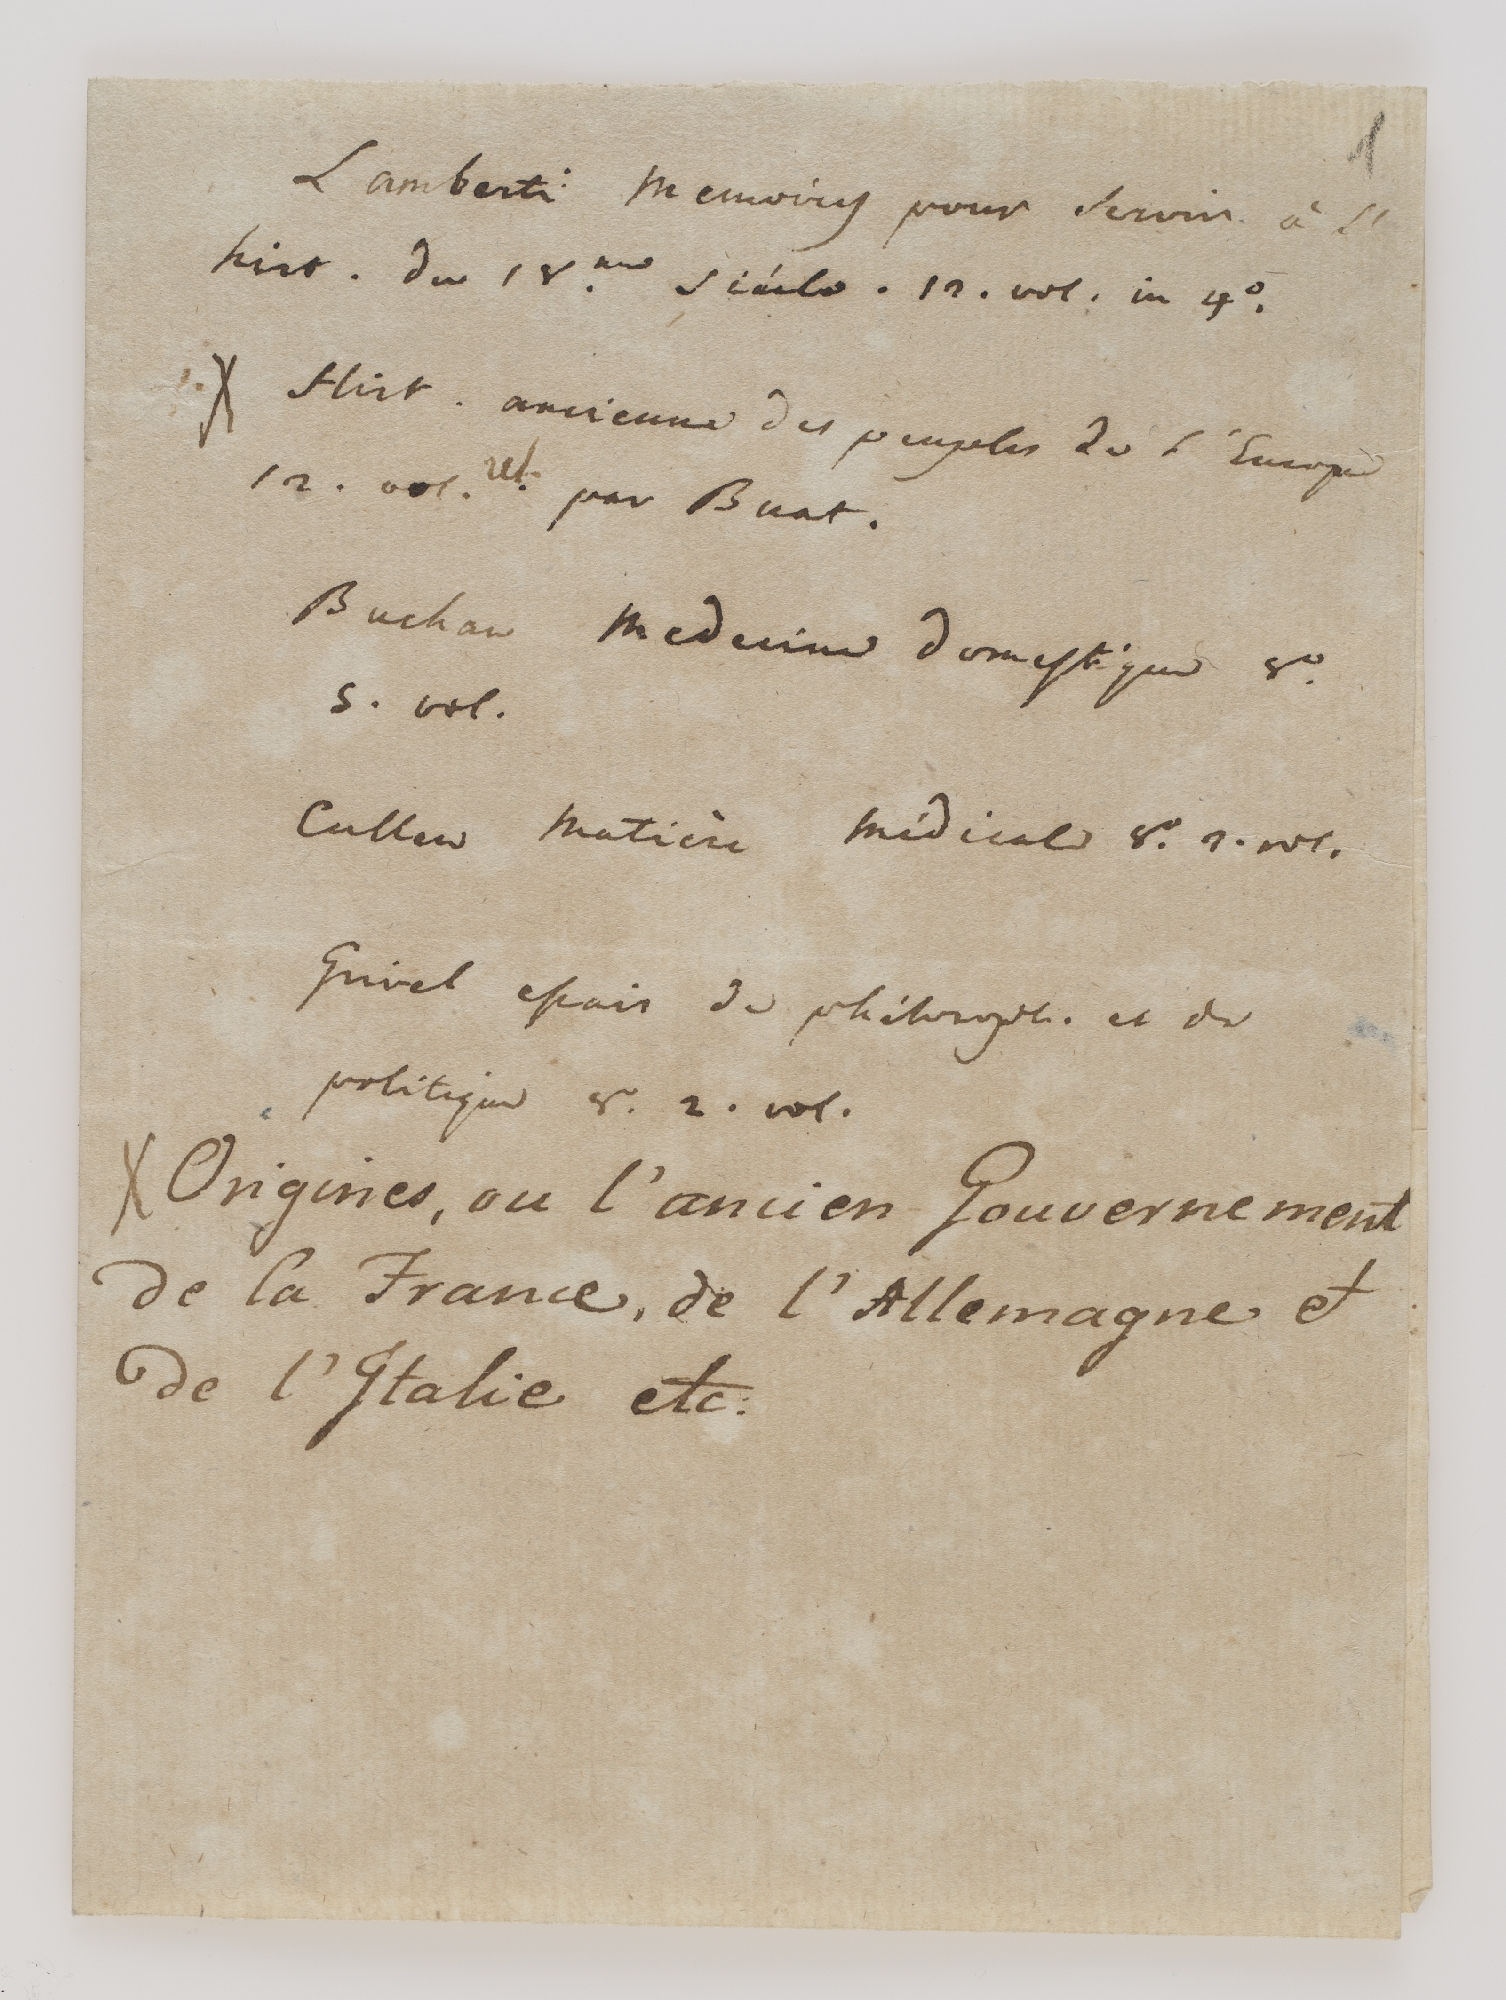 1
Lamberti Memoires pour servir à l'
hist. du 18.me Siécle. 12. vol. in 4o.
X Hist. ancienne des peuples de l'Europe
12. vol. par Buat.
Buchan Medecine domestique 8o.
5. vol.
Cullen Matière médicale 8o. 2. vol.
Grivel essais de philosoph. et de
politique 8o. 2. vol.
X Origines, ou l'ancien Gouvernement
de la France, de l'Allemagne et
de l'Italie etc.